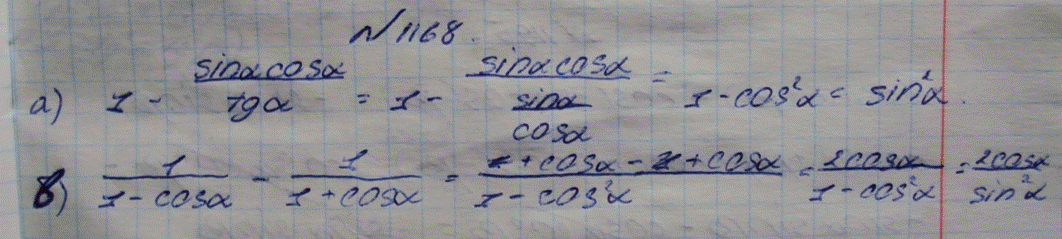 N1168.
а) 1 - (sinα cosα)/(tgα) = 1 - (sinα cosα)/(sinα/cosα) = 1 - cos²α = sin²α.
в) 1/(1 - cosα) - 1/(1 + cosα) = (1 + cosα - 1 + cosα)/(1 - cos²α) = 2cosα/(1 - cos²α) = 2cosα/sin²α